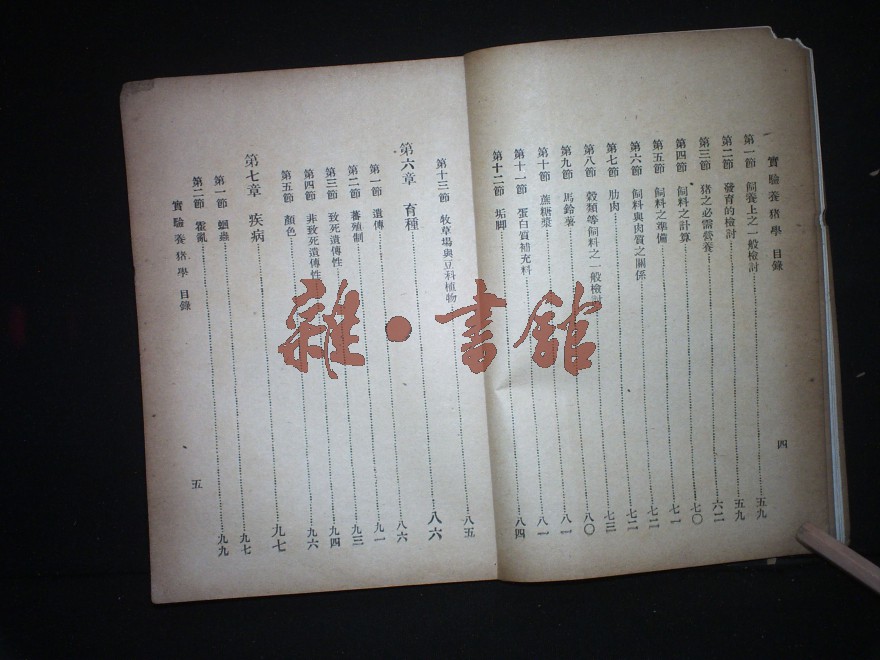 實驗養猪學 目錄
四
第一節 飼養上之一般檢討 五九
第二節 發育的檢討 五九
第三節 猪之必需營養 六二
第四節 飼料之計算 七〇
第五節 飼料之準備 七一
第六節 飼料與肉質之關係 七二
第七節 肋肉 七二
第八節 穀類等飼料之一般檢討 七三
第九節 馬鈴薯 八〇
第十節 蔗糖漿 八一
第十一節 蛋白質補充料 八一
第十二節 垢脚 八四
第十三節 牧草場與豆科植物 八五
第六章 育種 八六
第一節 遺傳 八六
第二節 蕃殖制 九一
第三節 致死遺傳性 九三
第四節 非致死遺傳性 九四
第五節 顏色 九六
第七章 疾病 九七
第一節 蛔蟲 九七
第二節 霍亂 九九
實驗養猪學 目錄
五
雜·書館